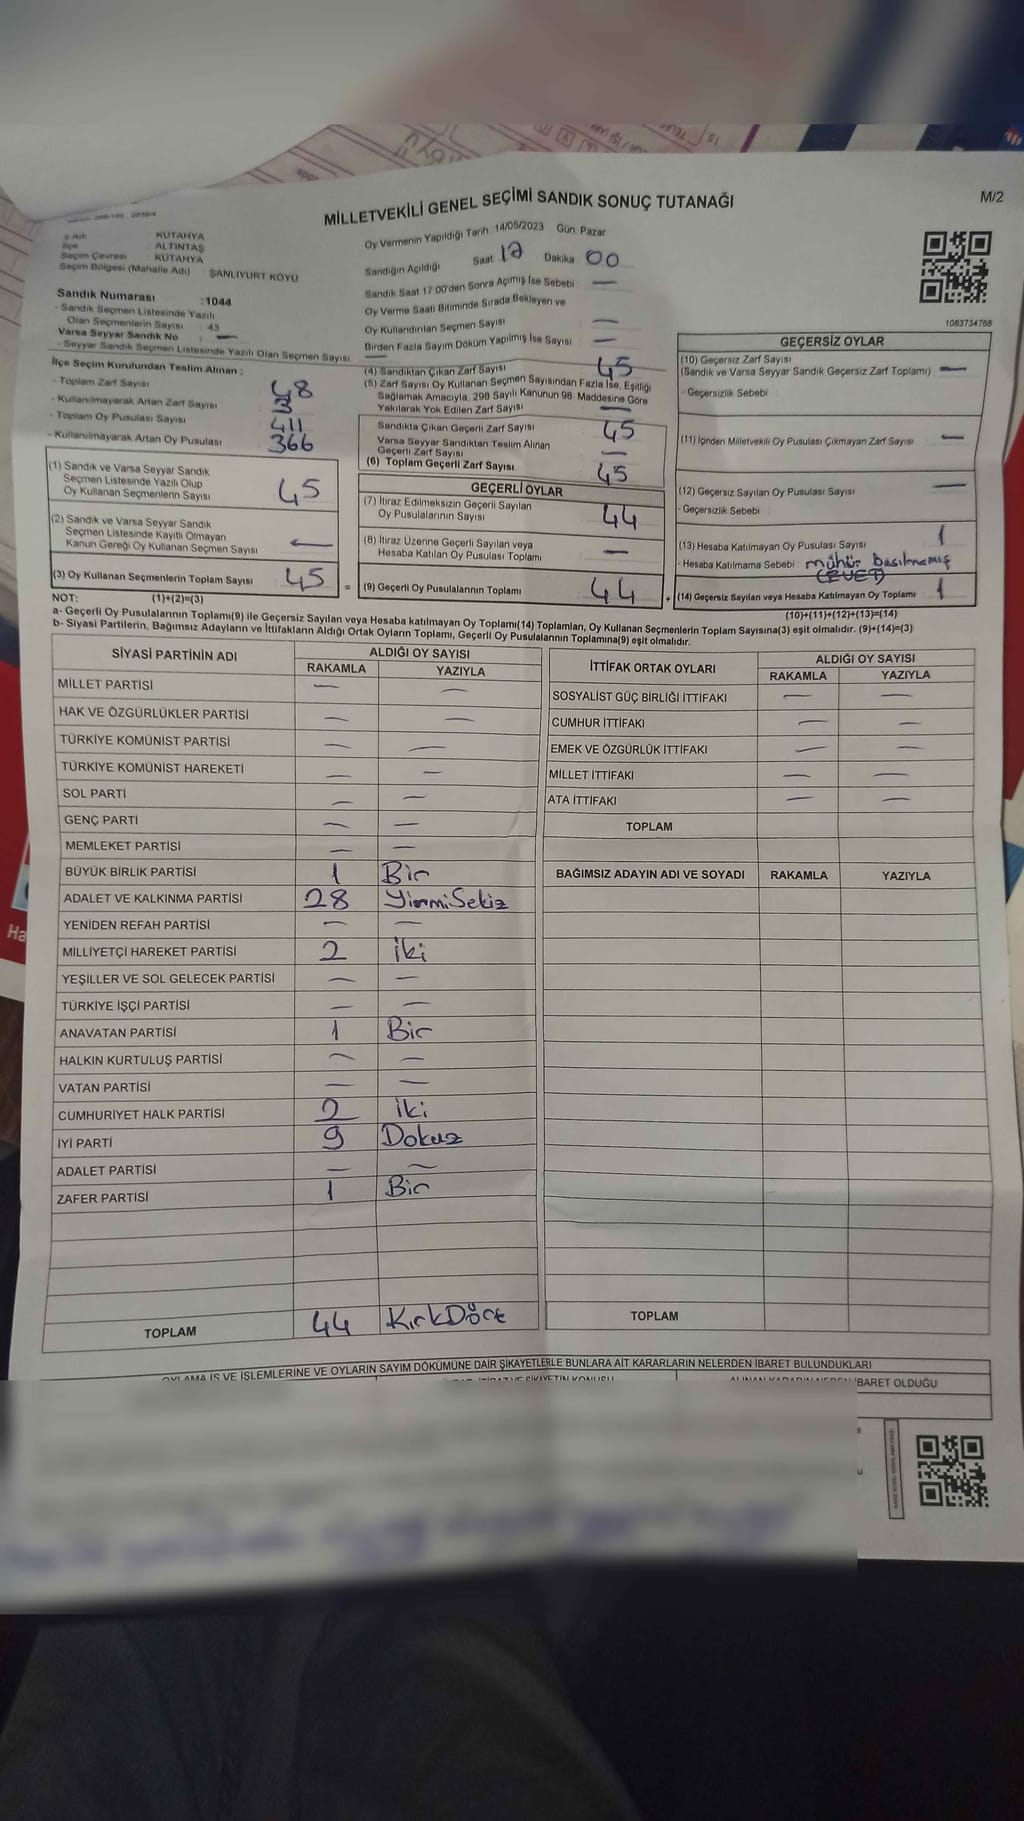 MİLLETVEKİLİ GENEL SEÇİMİ SANDIK SONUÇ TUTANAĞI
M/2
KÜTAHYA
İlçe : ALTINTAŞ
Seçim Çevresi : KÜTAHYA
Seçim Bölgesi (Mahalle Adı) ŞANLIYURT KÖYÜ
Sandık Numarası :1044
- Sandık Seçmen Listesinde Yazılı
Olan Seçmenlerin Sayısı :
Varsa Seyyar Sandık No : —
- Seyyar Sandık Seçmen Listesinde Yazılı Olan Seçmen Sayısı —
Oy Vermenin Yapıldığı Tarih 14/05/2023 Gün: Pazar
Sandığın Açıldığı Saat Dakika 00
Sandık Saat 17:00'den Sonra Açımış İse Sebebi : —
Oy Verme Saati Bitiminde Sırada Bekleyen ve
Oy Kullandırılan Seçmen Sayısı —
Birden Fazla Sayım Döküm Yapılmış İse Sayısı —
1083734788
İlçe Seçim Kurulundan Teslim Alınan ;
- Toplam Zarf Sayısı 48
- Kullanılmayarak Artan Zarf Sayısı 3
- Toplam Oy Pusulası Sayısı 411
- Kullanılmayarak Artan Oy Pusulası 366
(1) Sandık ve Varsa Seyyar Sandık
Seçmen Listesinde Yazılı Olup
Oy Kullanan Seçmenlerin Sayısı 45
(2) Sandık ve Varsa Seyyar Sandık
Seçmen Listesinde Kayıtlı Olmayan
Kanun Gereği Oy Kullanan Seçmen Sayısı —
(3) Oy Kullanan Seçmenlerin Toplam Sayısı 45 =
(4) Sandıktan Çıkan Zarf Sayısı 45
(5) Zarf Sayısı Oy Kullanan Seçmen Sayısından Fazla İse, Eşitliği
Sağlamak Amacıyla, 298 Sayılı Kanunun 98 Maddesine Göre
Yakılarak Yok Edilen Zarf Sayısı —
Sandıkta Çıkan Geçerli Zarf Sayısı 45
Varsa Seyyar Sandıktan Teslim Alınan
Geçerli Zarf Sayısı —
(6) Toplam Geçerli Zarf Sayısı 45
GEÇERLİ OYLAR
(7) İtiraz Edilmeksizin Geçerli Sayılan
Oy Pusulalarının Sayısı 44
(8) İtiraz Üzerine Geçerli Sayılan veya
Hesaba Katılan Oy Pusulası Toplamı —
(9) Geçerli Oy Pusulalarının Toplamı 44 +
GEÇERSİZ OYLAR
(10) Geçersiz Zarf Sayısı
(Sandık ve Varsa Seyyar Sandık Geçersiz Zarf Toplamı) —
- Geçersizlik Sebebi :
(11) İçinden Milletvekili Oy Pusulası Çıkmayan Zarf Sayısı —
(12) Geçersiz Sayılan Oy Pusulası Sayısı —
- Geçersizlik Sebebi :
(13) Hesaba Katılmayan Oy Pusulası Sayısı 1
- Hesaba Katılmama Sebebi : mühür basılmamış
(EVET)
(14) Geçersiz Sayılan veya Hesaba Katılmayan Oy Toplamı 1
NOT: (1)+(2)=(3)
(10)+(11)+(12)+(13)=(14)
a- Geçerli Oy Pusulalarının Toplamı(9) ile Geçersiz Sayılan veya Hesaba katılmayan Oy Toplamı(14) Toplamları, Oy Kullanan Seçmenlerin Toplam Sayısına(3) eşit olmalıdır. (9)+(14)=(3)
b- Siyasi Partilerin, Bağımsız Adayların ve İttifakların Aldığı Ortak Oyların Toplamı, Geçerli Oy Pusulalarının Toplamına(9) eşit olmalıdır.
SİYASİ PARTİNİN ADI ALDIĞI OY SAYISI
RAKAMLA YAZIYLA
MİLLET PARTİSİ — —
HAK VE ÖZGÜRLÜKLER PARTİSİ — —
TÜRKİYE KOMÜNİST PARTİSİ — —
TÜRKİYE KOMÜNİST HAREKETİ — —
SOL PARTİ — —
GENÇ PARTİ — —
MEMLEKET PARTİSİ — —
BÜYÜK BİRLİK PARTİSİ 1 Bir
ADALET VE KALKINMA PARTİSİ 28 YirmiSekiz
YENİDEN REFAH PARTİSİ — —
MİLLİYETÇİ HAREKET PARTİSİ 2 iki
YEŞİLLER VE SOL GELECEK PARTİSİ — —
TÜRKİYE İŞÇİ PARTİSİ — —
ANAVATAN PARTİSİ 1 Bir
HALKIN KURTULUŞ PARTİSİ — —
VATAN PARTİSİ — —
CUMHURİYET HALK PARTİSİ 2 iki
İYİ PARTİ 9 Dokuz
ADALET PARTİSİ — —
ZAFER PARTİSİ 1 Bir
TOPLAM 44 KırkDört
İTTİFAK ORTAK OYLARI ALDIĞI OY SAYISI
RAKAMLA YAZIYLA
SOSYALİST GÜÇ BİRLİĞİ İTTİFAKI — —
CUMHUR İTTİFAKI — —
EMEK VE ÖZGÜRLÜK İTTİFAKI — —
MİLLET İTTİFAKI — —
ATA İTTİFAKI — —
TOPLAM
BAĞIMSIZ ADAYIN ADI VE SOYADI RAKAMLA YAZIYLA
TOPLAM
OYLAMA İŞ VE İŞLEMLERİNE VE OYLARIN SAYIM DÖKÜMÜNE DAİR ŞİKAYETLERLE BUNLARA AİT KARARLARIN NELERDEN İBARET BULUNDUKLARI
BARET OLDUĞU